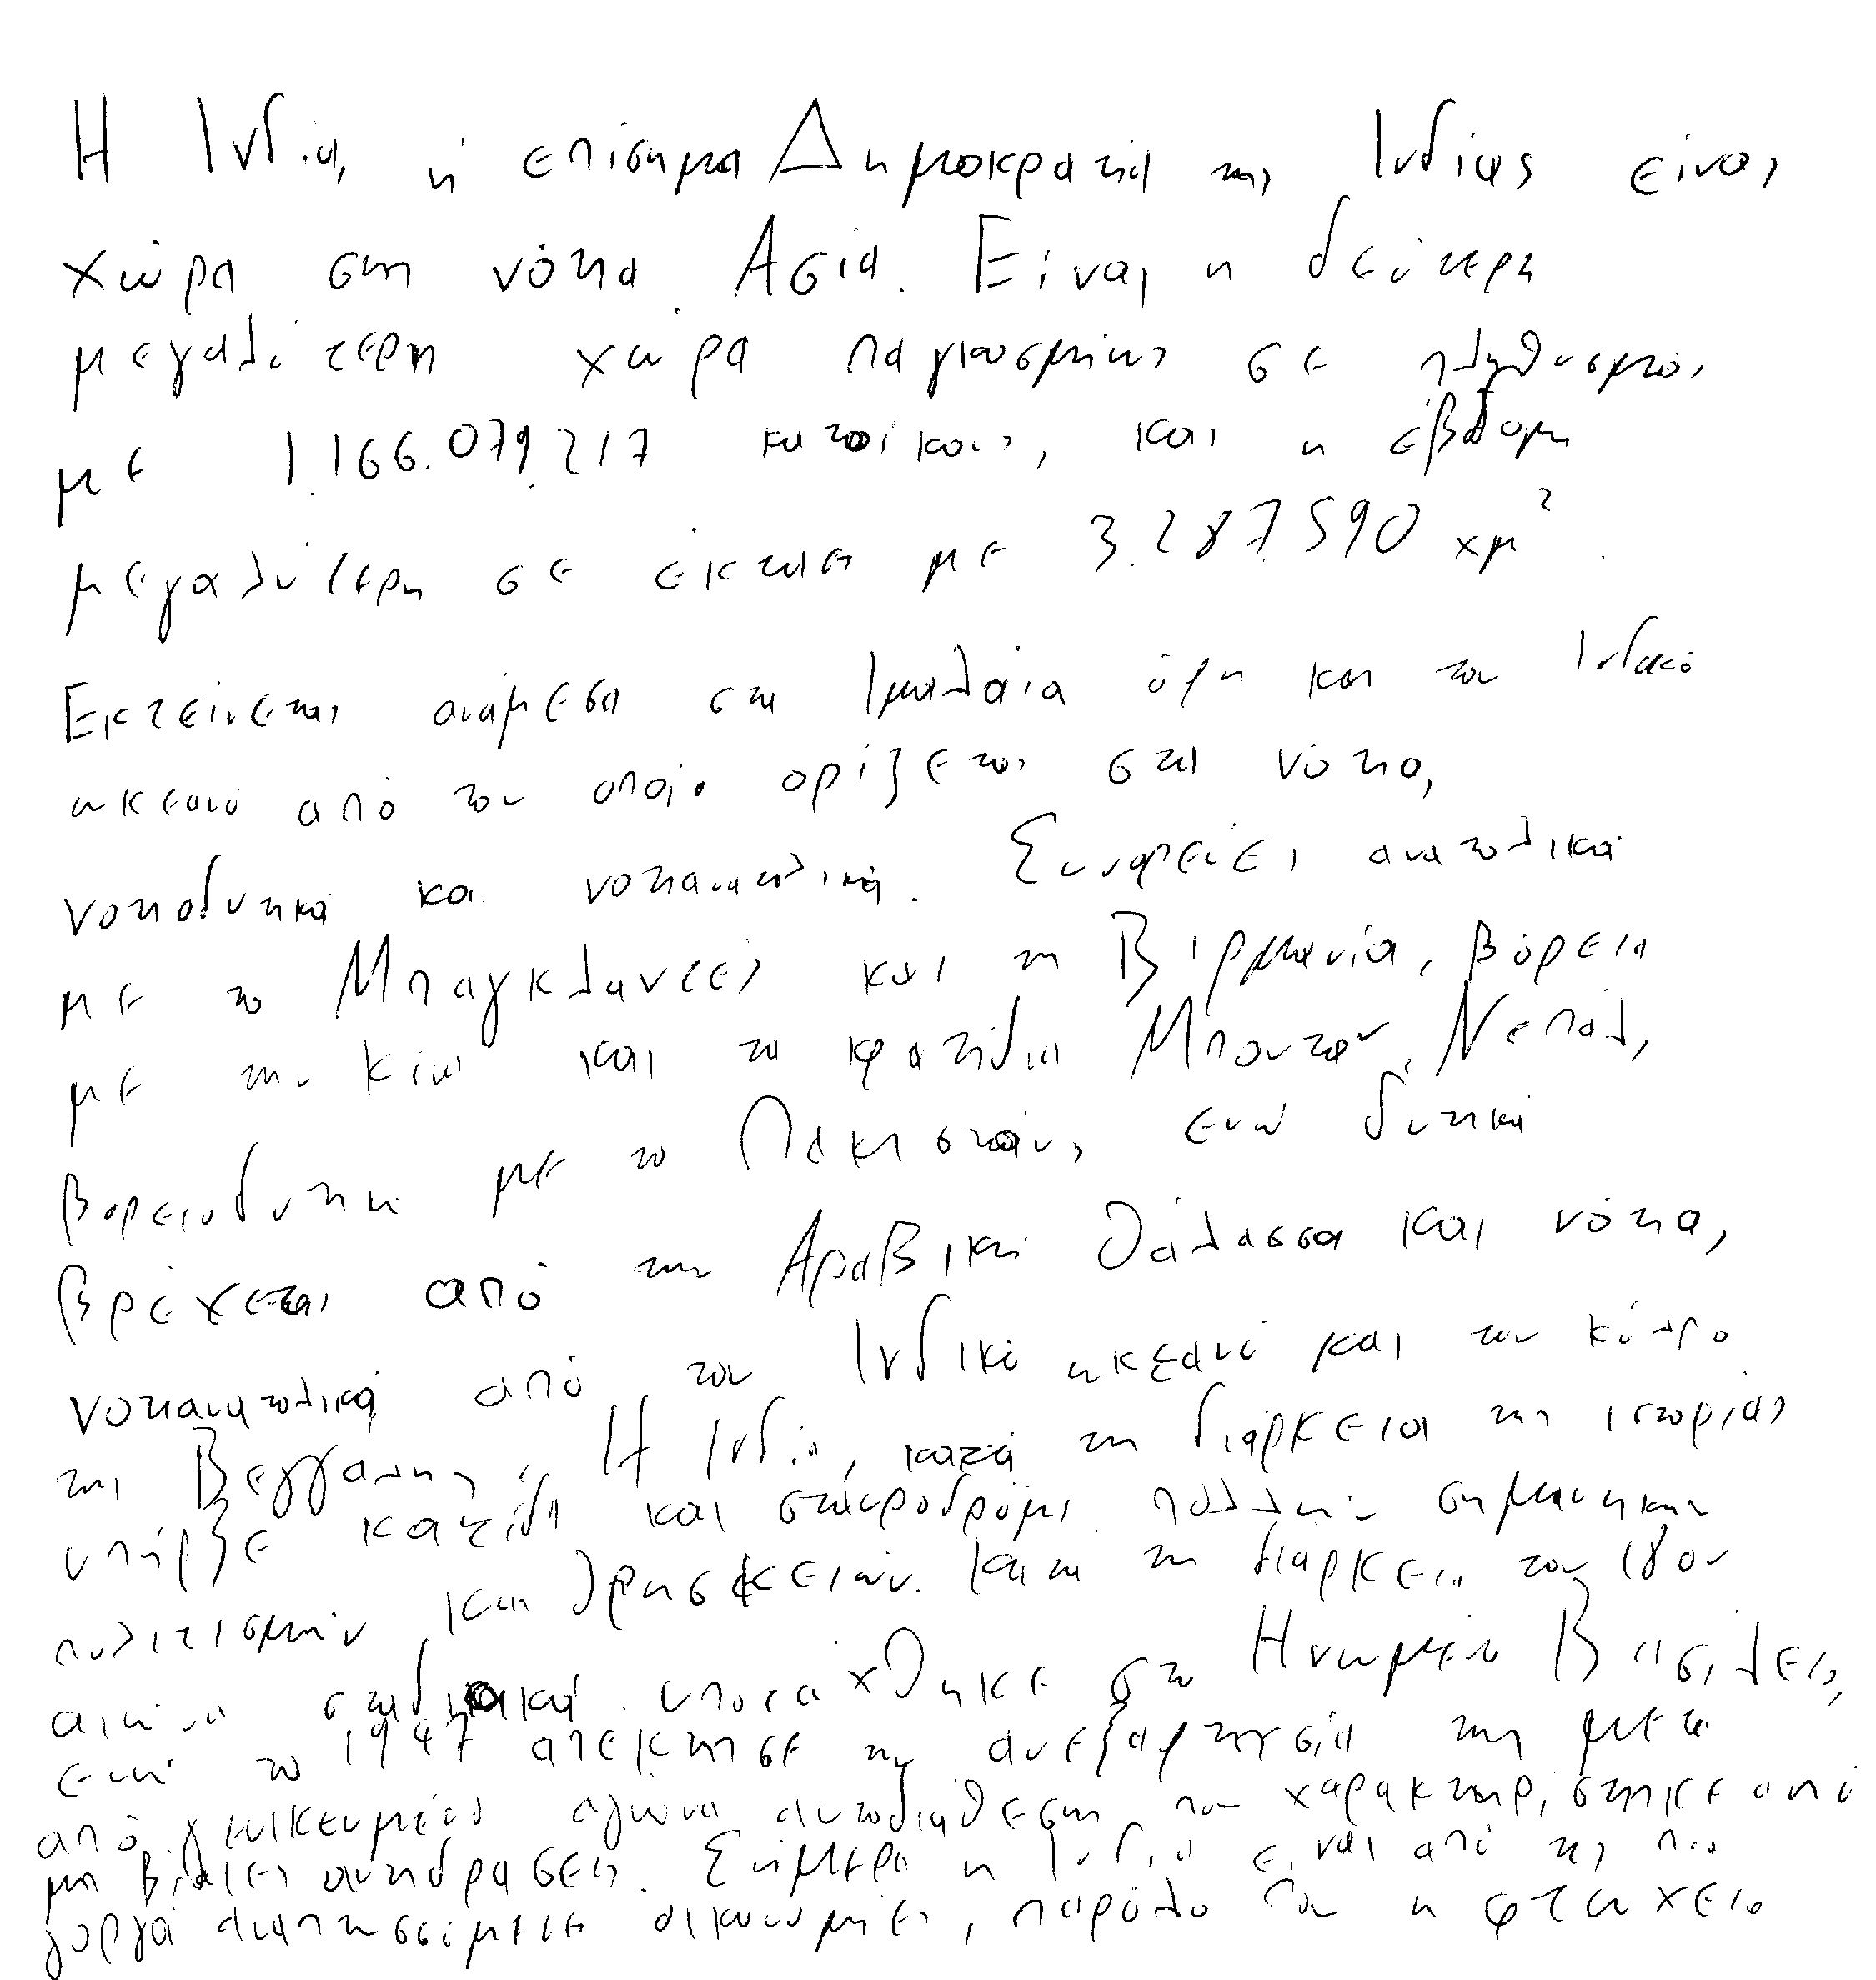 Η Ινδία, ή επίσημα Δημοκρατία της Ινδίας είναι
χώρα στη νότια Ασία. Είναι η δεύτερη
μεγαλύτερη χώρα παγκοσμίως σε πληθυσμό,
με 1.166.079.217 κατοίκους, και η έβδομη
μεγαλύτερη σε έκταση με 3.287.590 χμ².
Εκτείνεται ανάμεσα στα Ιμαλάια όρη και τον Ινδικό
ωκεανό από τον οποίο ορίζεται στα νότια,
νοτιοδυτικά και νοτιοανατολικά. Συνορεύει ανατολικά
με το Μπαγκλαντές και τη Βιρμανία, βόρεια
με την Κίνα και τα κρατίδια Μπουτάν, Νεπάλ,
βορειοδυτικά με το Πακιστάν, ενώ δυτικά
βρέχεται από την Αραβική Θάλασσα και νότια,
νοτιοανατολικά από τον Ινδικό ωκεανό και τον κόλπο
της Βεγγάλης. Η Ινδία, κατά τη διάρκεια της ιστορίας
υπήρξε κοιτίδα και σταυροδρόμι πολλών σημαντικών
πολιτισμών και θρησκειών. Κατά τη διάρκεια του 18ου
αιώνα σταδιακά υποτάχθηκε στο Ηνωμένο Βασίλειο,
ενώ το 1947 απέκτησε την ανεξαρτησία της μετά
από γενικευμένο αγώνα αυτοδιάθεσης που χαρακτηρίστηκε από
μη βίαιες αντιδράσεις. Σήμερα η Ινδία είναι από τις πιο
γοργά αναπτυσσόμενες οικονομίες, παρόλο που η φτώχεια